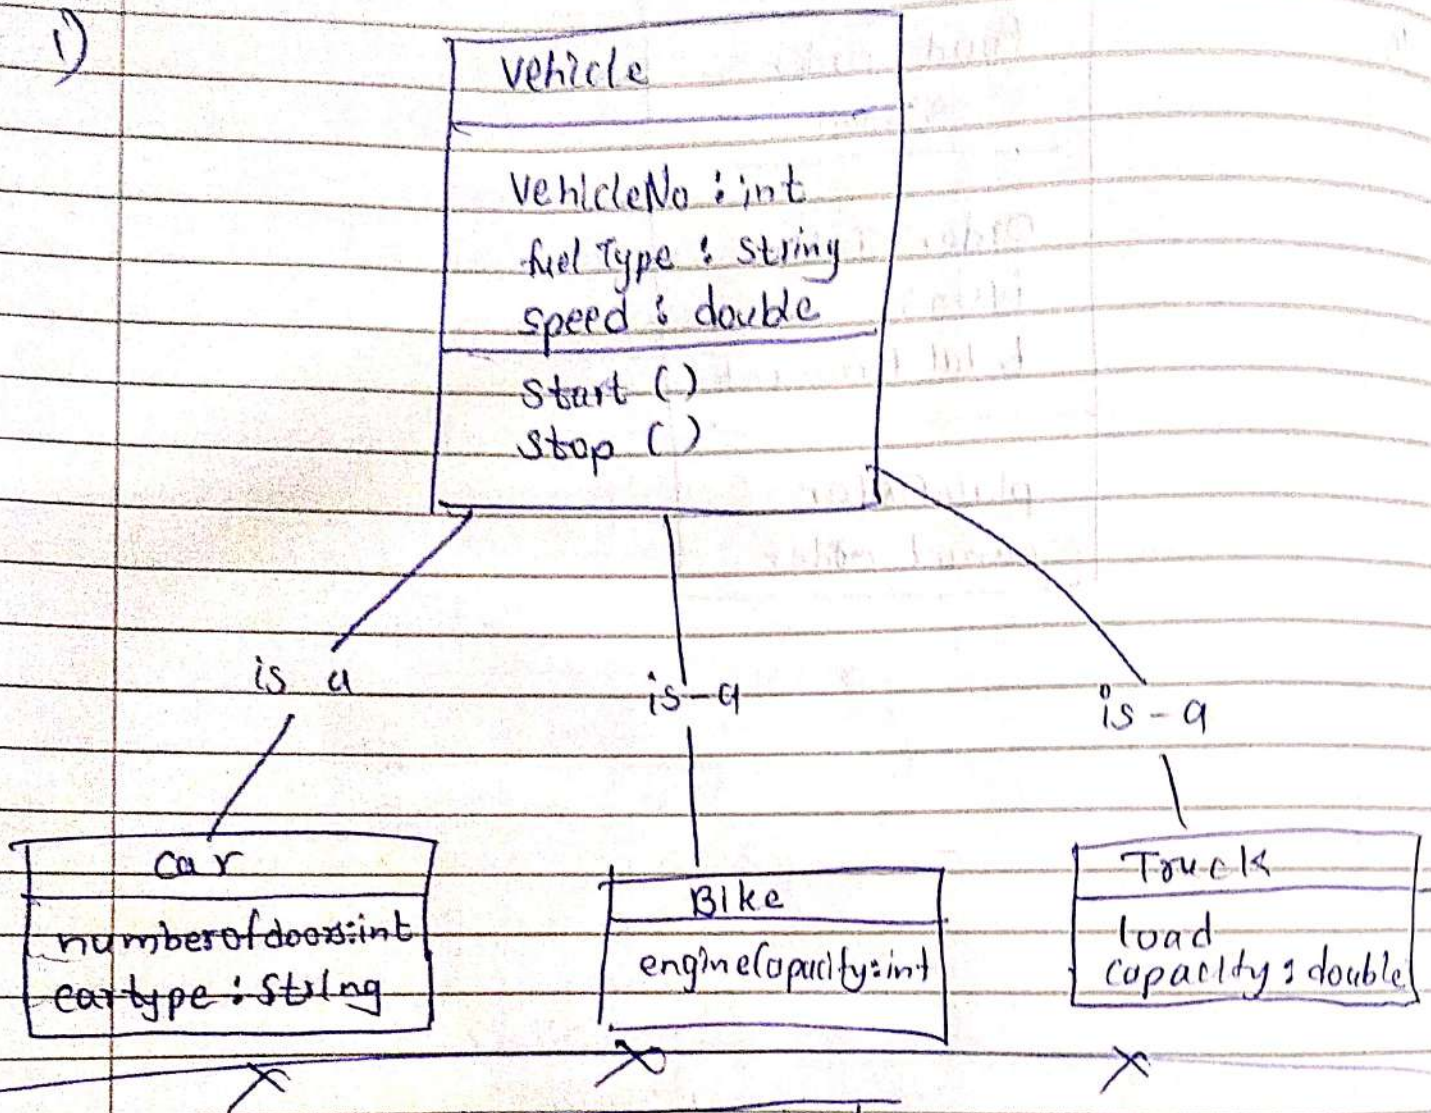 1)
Vehicle
VehicleNo : int
fuel Type : String
speed : double
Start ()
Stop ()
is a
is-a
is-a
Car
numberofdoors:int
cartype : String
Bike
engineCapacity:int
Truck
load
capacity : double